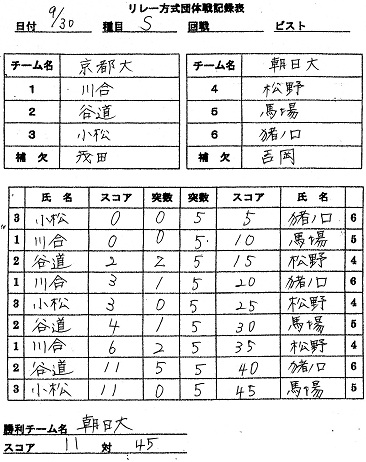 リレー方式団体戦記録表
日付 9/30 種目 S 回戦 ピスト
チーム名 京都大 チーム名 朝日大
1 川合 4 松野
2 谷道 5 馬場
3 小松 6 猪ノ口
補欠 茂田 補欠 吉岡
氏名 スコア 突数 突数 スコア 氏名
3 小松 0 0 5 5 猪ノ口 6
1 川合 0 0 5 10 馬場 5
2 谷道 2 2 5 15 松野 4
1 川合 3 1 5 20 猪ノ口 6
3 小松 3 0 5 25 松野 4
2 谷道 4 1 5 30 馬場 5
1 川合 6 2 5 35 松野 4
2 谷道 11 5 5 40 猪ノ口 6
3 小松 11 0 5 45 馬場 5
勝利チーム名 朝日大
スコア 11 対 45